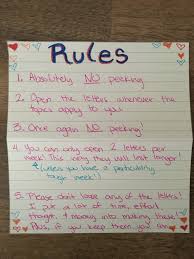 Rules
1. Absolutely NO peeking
2. Open the letters whenever the
topics apply to you
3. Once again NO peeking!
4. You can only open 2 letters per
week! This way they will last longer!
(unless you have a particularly
tough week!)
5. Please don't lose any of the letters!
I put a lot of time, effort,
thought, + money into making these!
Plus, if you keep them you